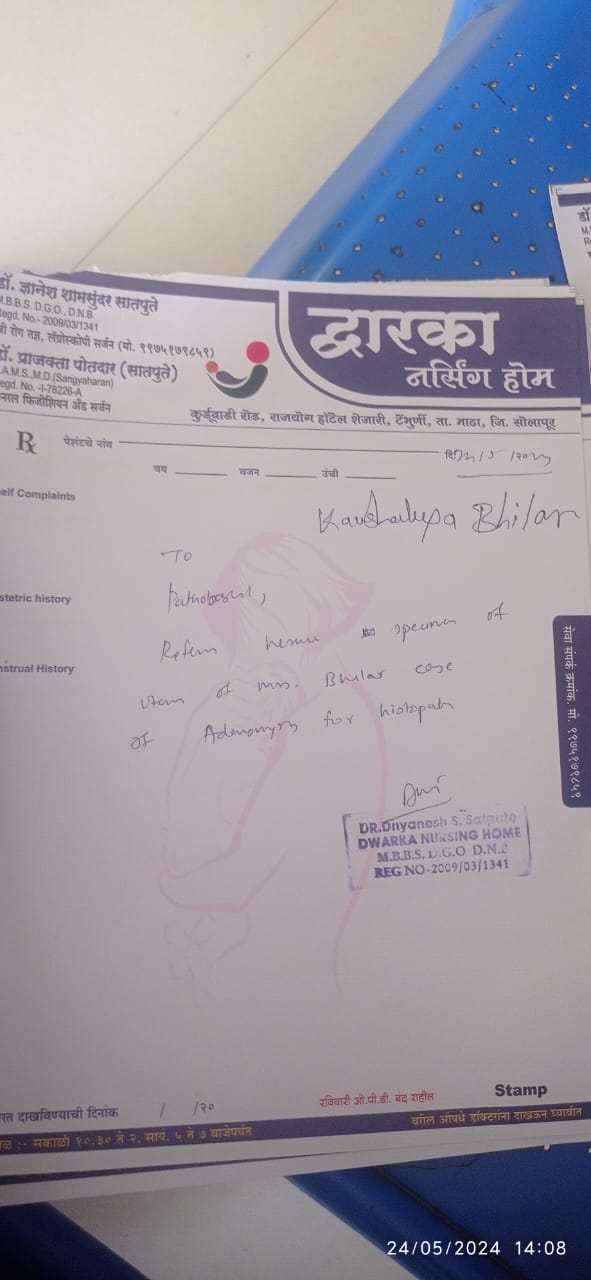 डॉ. ज्ञानेश शामसुंदर सातपुते
M.B.B.S. D.G.O., D.N.B.
Regd. No.- 2009/03/1341
स्त्री रोग तज्ञ, लॅप्रोस्कोपी सर्जन (मो. ९९७५१७९८५१)
डॉ. प्राजक्ता पोतदार (सातपुते)
B.A.M.S.,M.D.(Sangyaharan)
Regd. No. -I-78226-A
जनरल फिजीशियन अँड सर्जन
द्वारका
नर्सिंग होम
कुर्डूवाडी रोड, राजयोग हॉटेल शेजारी, टेंभुर्णी, ता. माढा, जि. सोलापूर
Rx पेशंटचे नांव
दि.
वय वजन उंची
eif Complaints
Bhilar
To
Pathologist,
stetric history
Refern specimen of
nstrual History
of Mrs. Bhilar case
of for histopath
सेवा संपर्क क्रमांक. मो. ९९७५१७९८५१
DR.Dnyanesh S. Satpute
DWARKA NURSING HOME
M.B.B.S. D.G.O D.N.B
REG NO-2009/03/1341
रत दाखविण्याची दिनांक / /२०
रविवारी ओ.पी.डी. बंद राहील
Stamp
ळ :- सकाळी १०.३० ते २, सायं. ५ ते ७ वाजेपर्यंत
वरील औषधे डॉक्टरांना दाखऊन घ्यावीत
24/05/2024 14:08